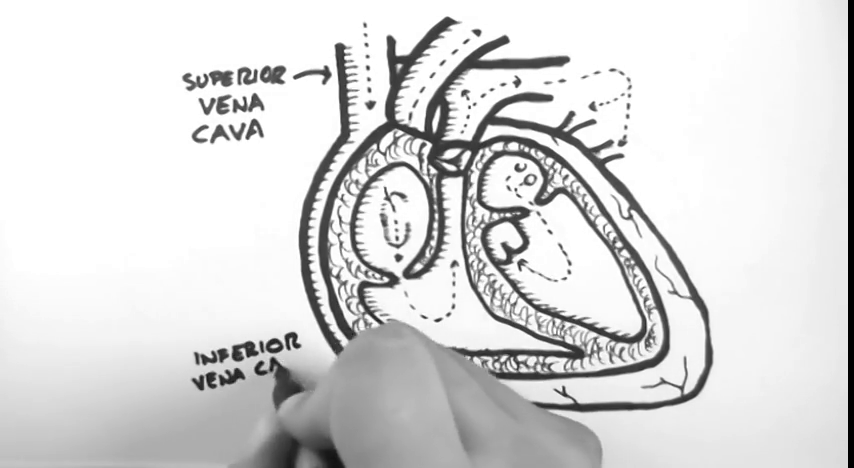 SUPERIOR
VENA
CAVA
INFERIOR
VENA CA